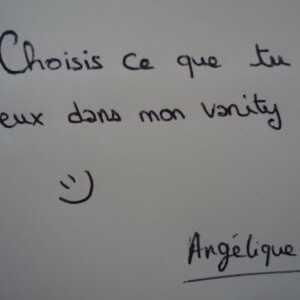 Choisis ce que tu
eux dans mon vanity
:)
Angélique